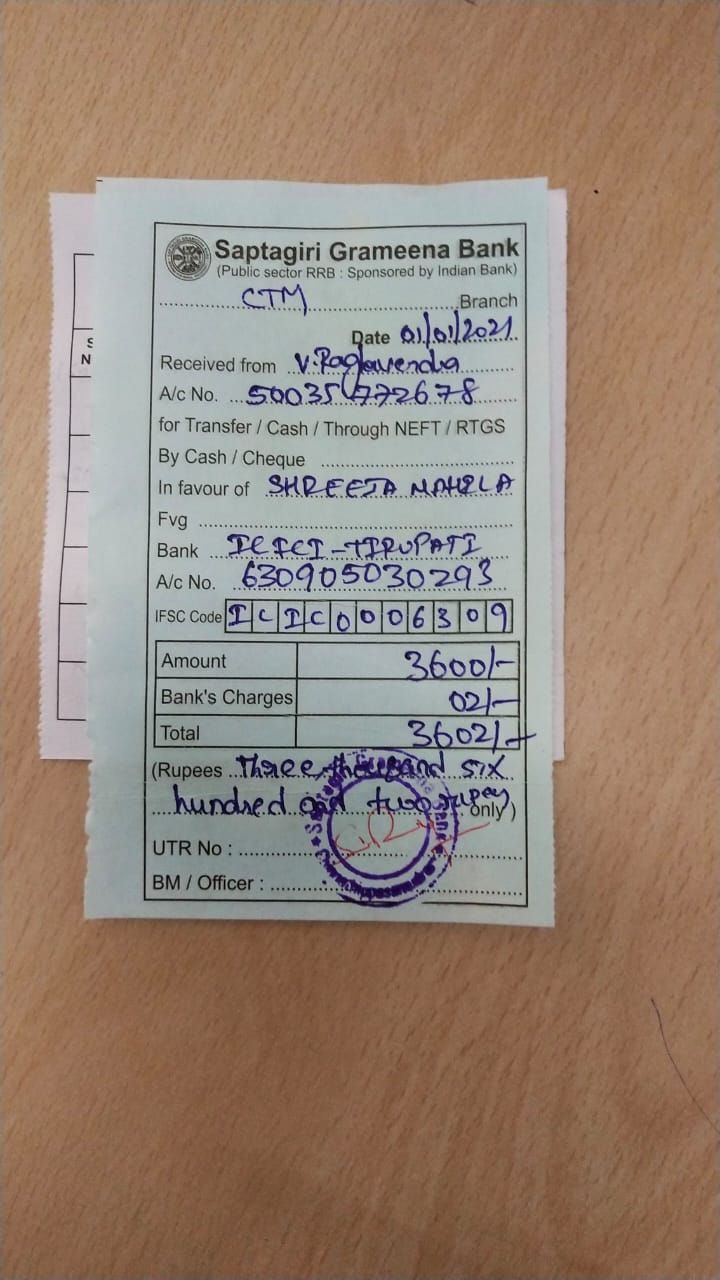 Saptagiri Grameena Bank
(Public sector RRB : Sponsored by Indian Bank)
CTM Branch
Date 01/01/2021
Received from V. Raghavendra
A/c No. 50035772678
for Transfer / Cash / Through NEFT / RTGS
By Cash / Cheque
In favour of SHREEJA MAHILA
Fvg
Bank ICICI - TIRUPATI
A/c No. 630905030293
IFSC Code ICIC0006309
Amount 3600/-
Bank's Charges 02/-
Total 3602/-
(Rupees Three thousand six
hundred and two rupees only)
UTR No :
BM / Officer :
Saptagiri Grameena Bank
S
N